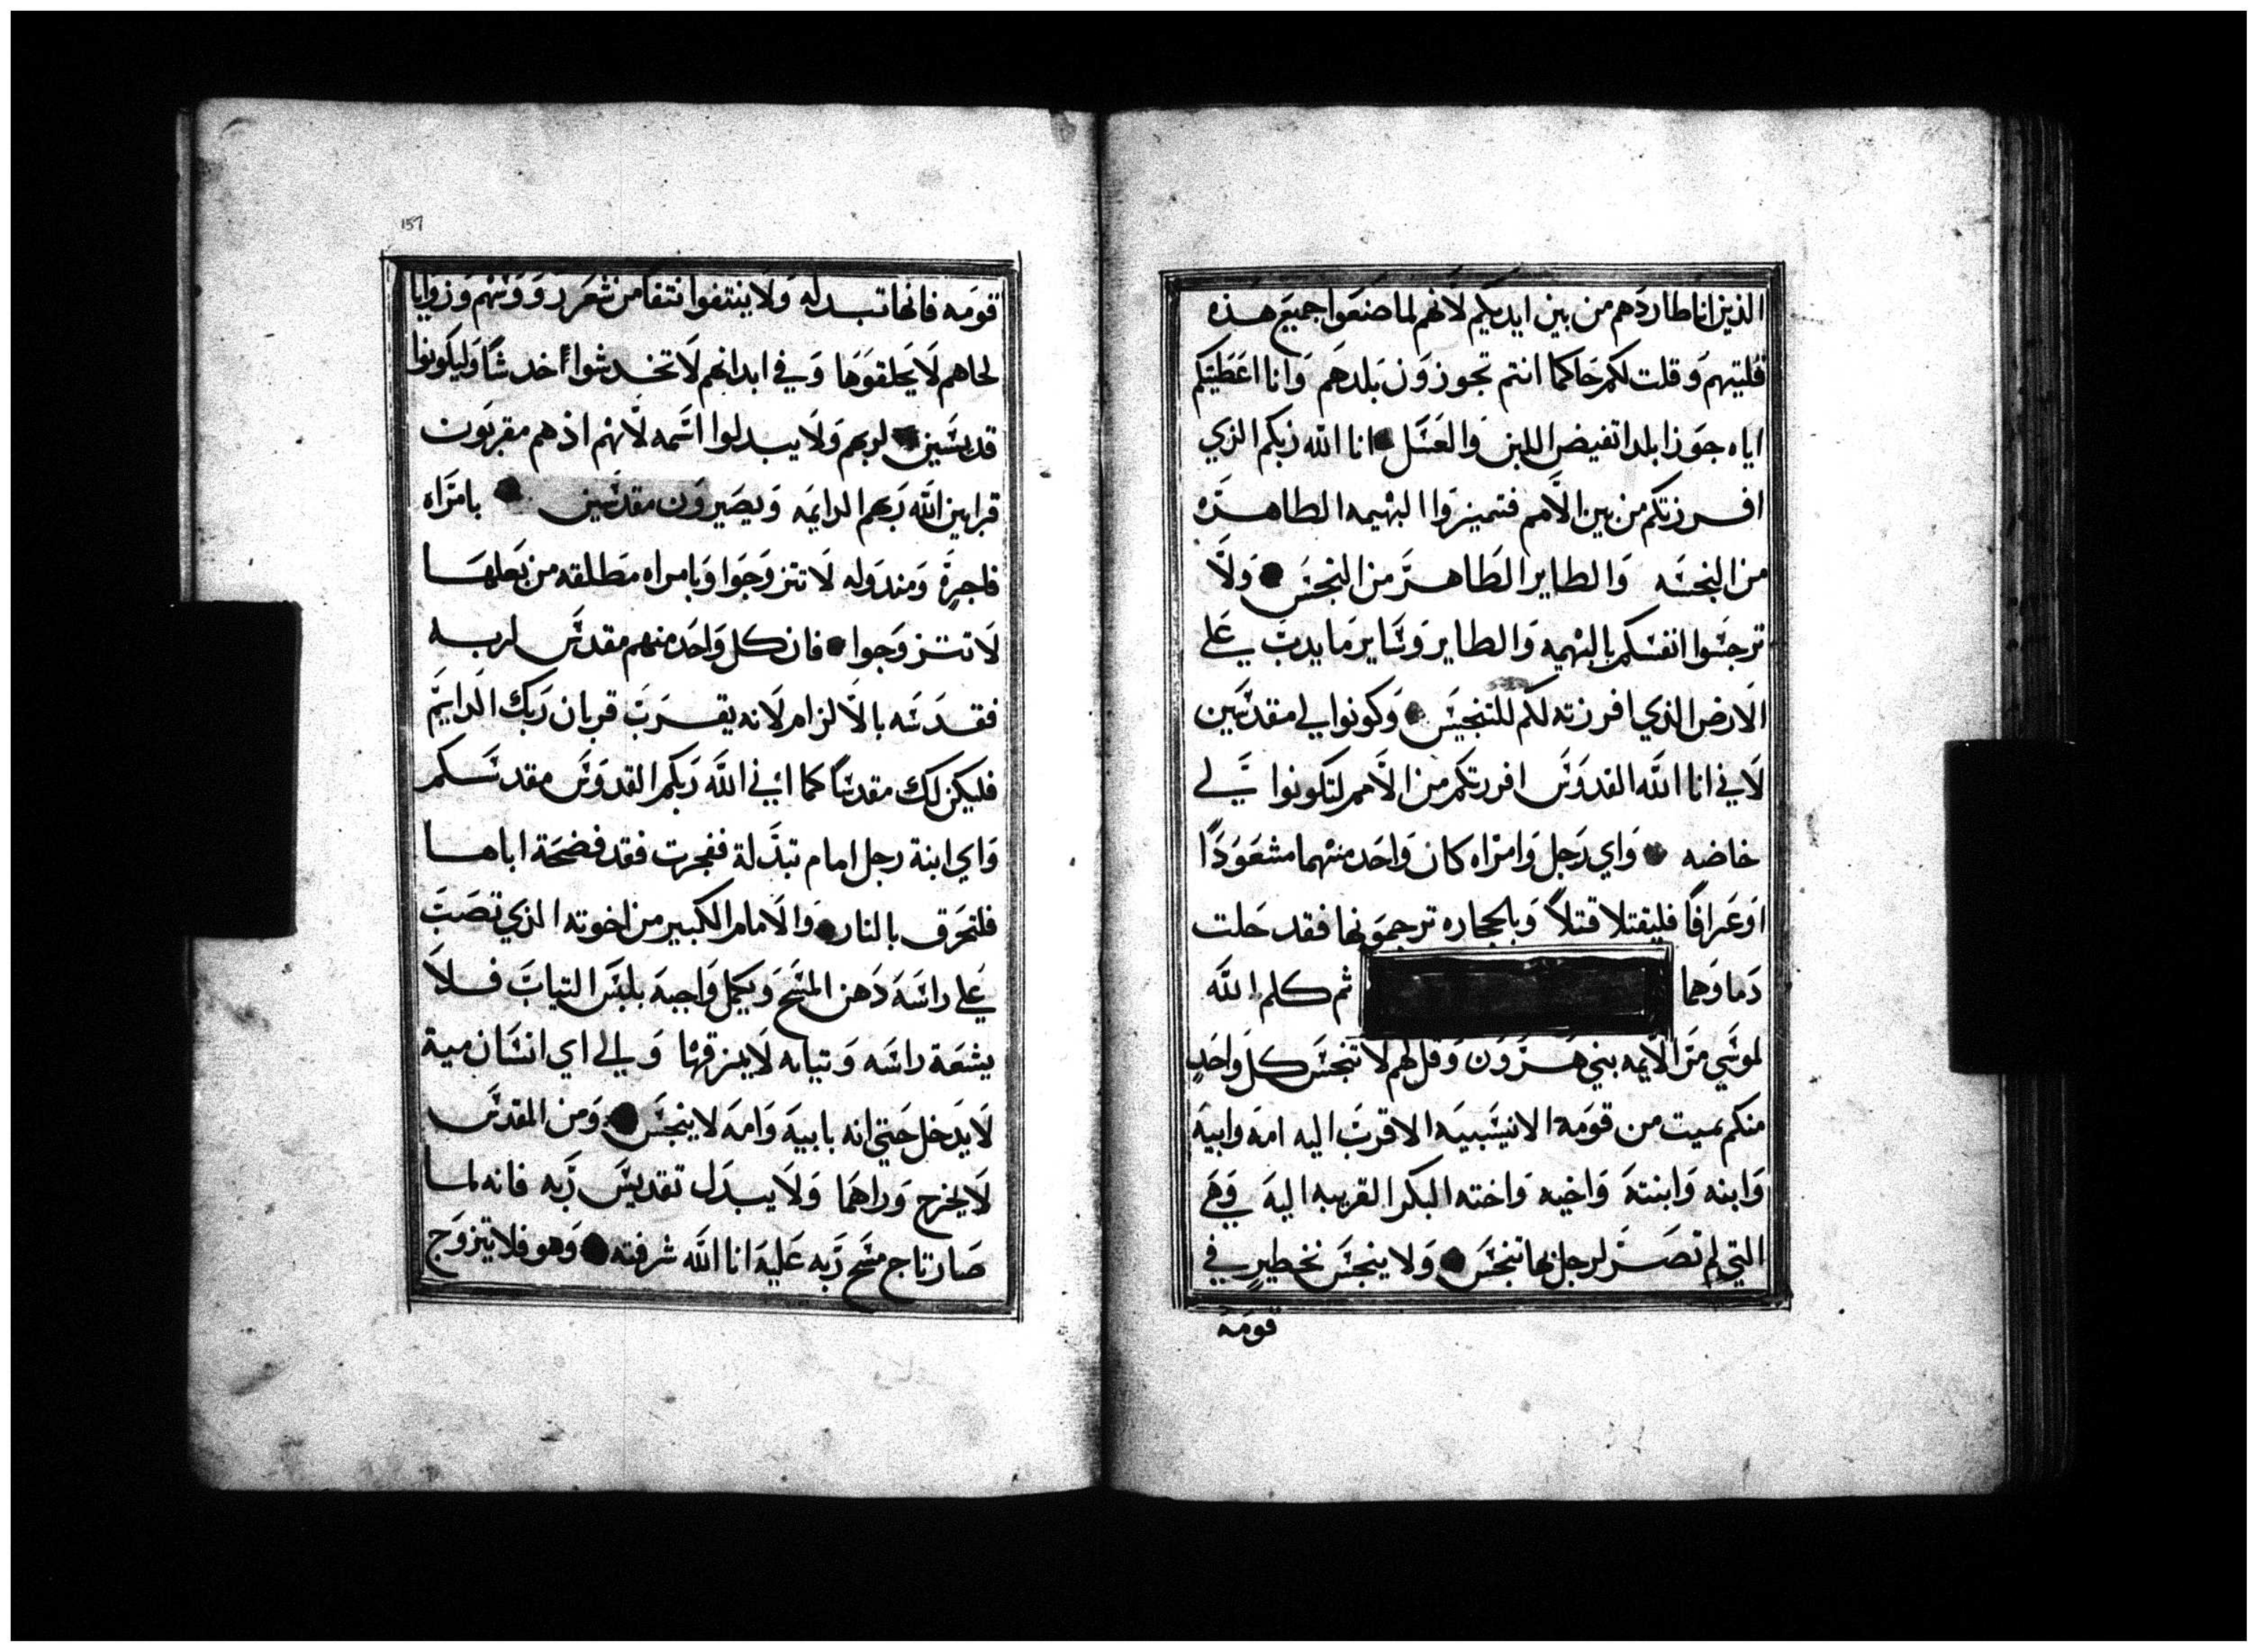 الذين انا طاردهم من بين ايديكم لانهم لما صنعوا جميع هذه
قليتهم وقلت لكم حاكما انتم تجوزون بلدهم وانا اعطيتكم
اياه جوزا بلدا تفيض اللبن والعسل انا الله ربكم الذي
افرزتكم من بين الامم فتميزوا البهيمه الطاهره
من النجسه والطاير الطاهر من النجس ولا
ترجسوا انفسكم بالبهيمه والطاير وساير ما يدب علي
الارض الذي افرزته لكم للتنجيس وكونوا لي مقدسين
لاني انا الله القدوس افرزتكم من الامم لتكونوا لي
خاضه واي رجل وامراه كان واحد منهما مشعوذا
او عرافا فليقتلا قتلا وبالحجاره ترجمونها فقد حلت
دماوهما ثم كلم الله
لموسي مر الايمه بني هرون وقل لهم لا تنجس كل واحد
منكم بميت من قومه الا نسيبيه الاقرب اليه امه وابيه
وابنه وابنته واخيه واخته البكر القريبه اليه وهي
التي لم تصر لرجل بها تنجس ولا ينجس نخطير في
قومه
157
قومه فانها تبدله ولا ينتفوا نتفا من شعر رووسهم وزوايا
لحاهم لا يحلقوها وفي ابدانهم لا تخدشوا اخدشا وليكونوا
قديسين لربهم ولا يبدلوا اسمه لانهم اذ هم مقربون
قرابين الله ربهم الدايمه ويصيرون مقدسين بامراه
فاجرة ومندوله لا تتزوجوا وبامراه مطلقه من بعلها
لا تتزوجوا فان كل واحد منهم مقدس لربه
فقدسه بالالزام لانه يقرب قربان ربك الدايم
فليكن لك مقدسا كما اني الله ربكم القدوس مقدسكم
واي ابنة رجل امام تبذلة ففجرت فقد فضحة اباها
فلتحرق بالنار والامام الكبير من اخوته الذي تصب
علي راسه دهن المسح ويكمل واجبه بلبس الثياب فلا
يشعة راسه وثيابه لا يمزقها والي اي انسان مية
لا يدخل حتي انه بابيه وامه لا ينجس ومن المقدس
لا يخرج وراهما ولا يبدل تقديس ربه فانه لما
صار تاج مسح ربه عليه انا الله شرفته وهو فلا يتزوج